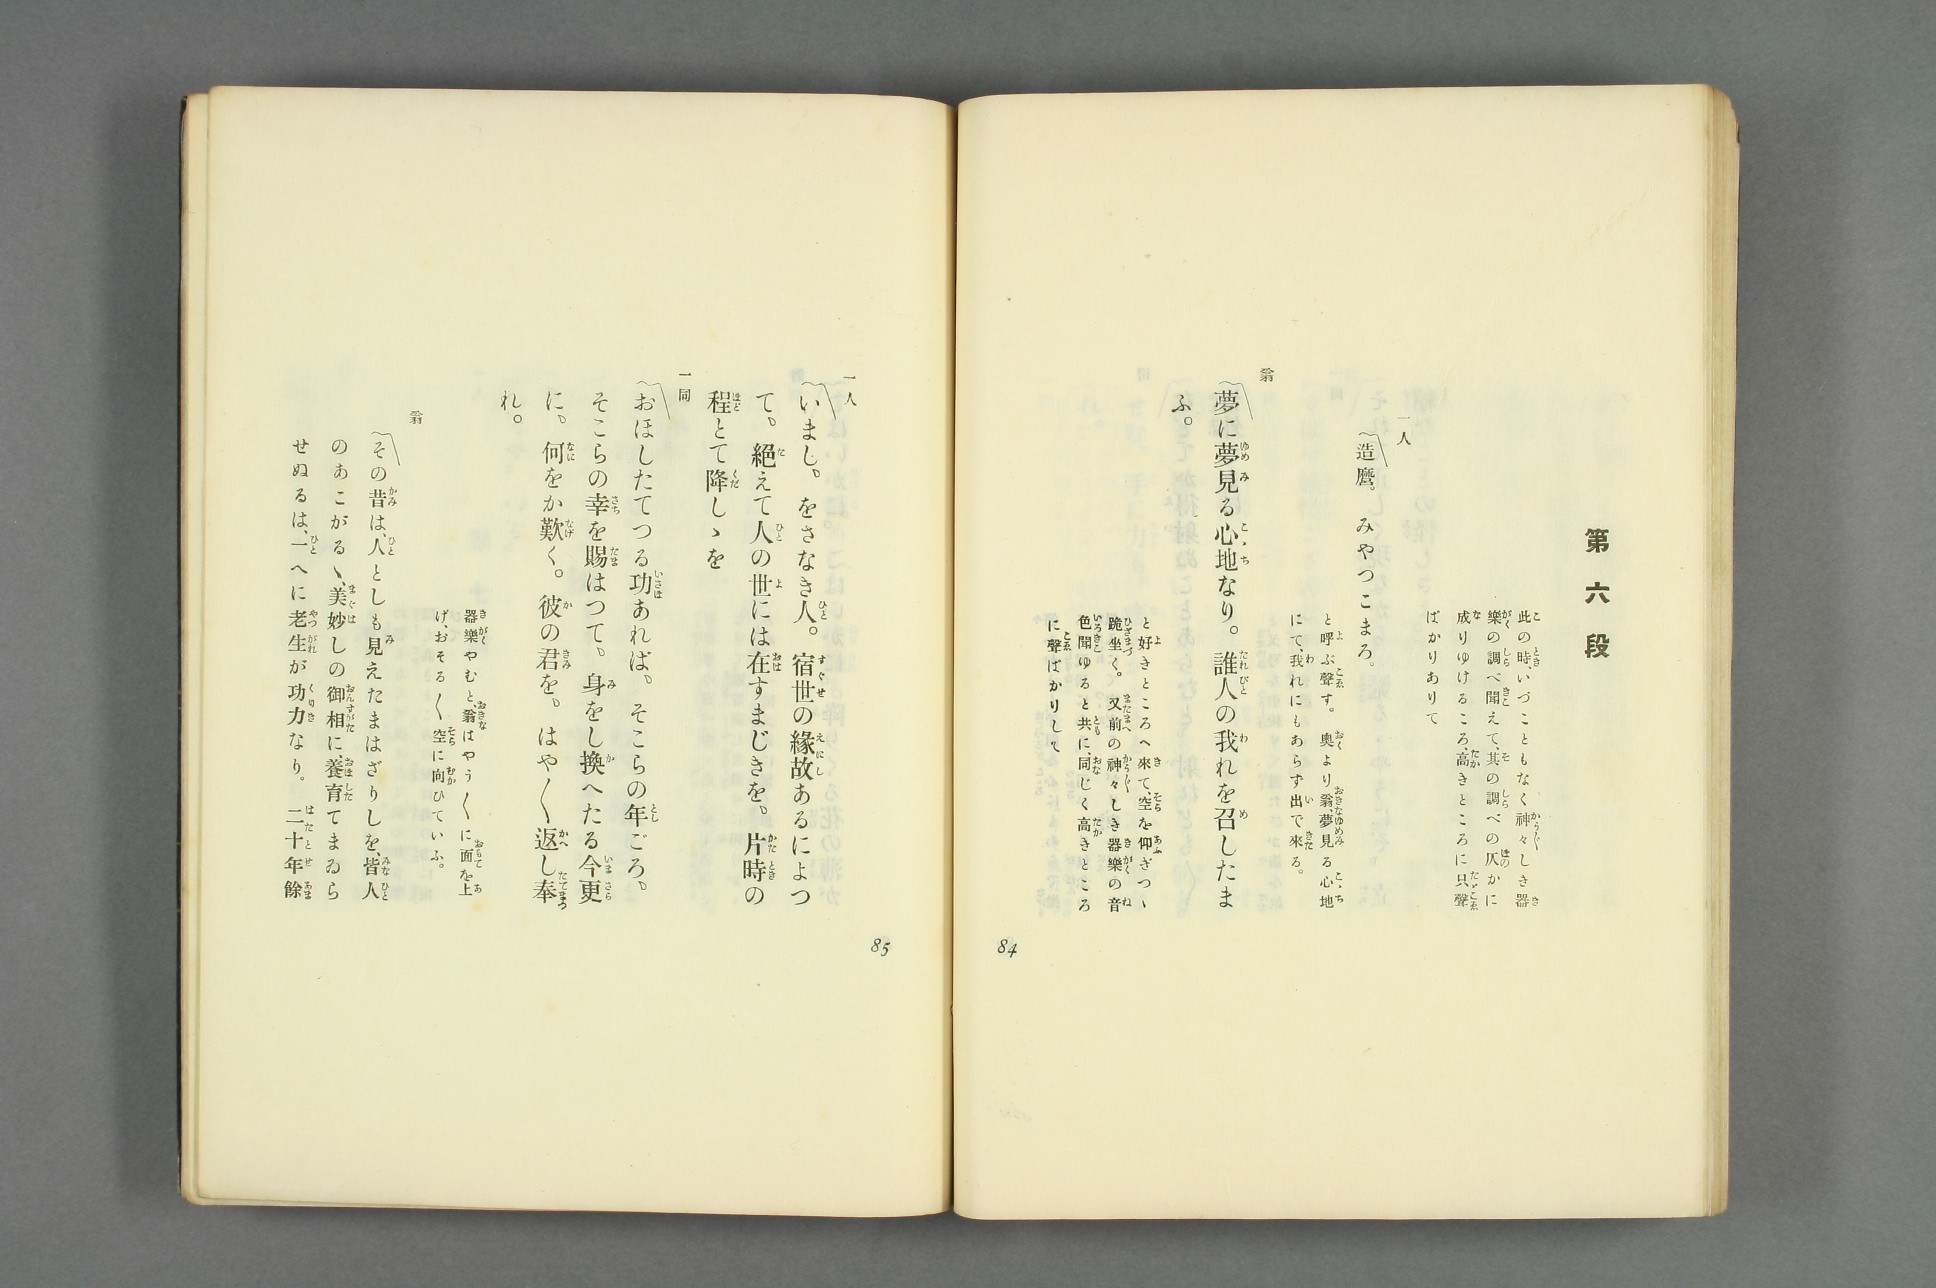 第六段
此の時、いづこともなく神々しき器
樂の調べ聞えて、其の調べの仄かに
成りゆけるころ、高きところに只聲
ばかりありて
一人
造麿。みやつこまろ。
と呼ぶ聲す。奥より翁、夢見る心地
にて、我れにもあらず出で來る。
翁
夢に夢見る心地なり。誰人の我れを召したま
ふ。
と好きところへ來て、空を仰ぎつゝ
跪坐く。又前の神々しき器樂の音
色聞ゆると共に、同じく高きところ
に聲ばかりして
84
一人
いまし。をさなき人。宿世の緣故あるによつ
て。絕えて人の世には在すまじきを。片時の
程とて降しゝを
一同
おほしたてつる功あれば。そこらの年ごろ、
そこらの幸を賜はつて。身をし換へたる今更
に。何をか歎く。彼の君を。はや〳〵返し奉
れ。
器樂やむと、翁はやう〳〵に面を上
げ、おそる〳〵空に向ひていふ。
翁
その昔は、人としも見えたまはざりしを、皆人
のあこがるゝ、美妙しの御相に、養育てまゐら
せぬるは、一へに老生が功力なり。二十年餘
85